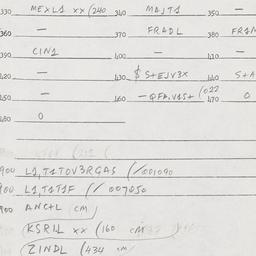 330 MEXL1 xx (240 340 MAJT1 350 —
360 — 370 FRADL 380
390 CIN1 400 — 410 —
420 — 430 $ S+EJV3X 440 S+A
450 — 460 470 0
480 0
900 L1,T1TOV3RGAS (/001090
900 L1,T1T1F (/ 007050
900 ANC+L cm)
(KSR1L xx (160 cm
(ZINDL (434 cm